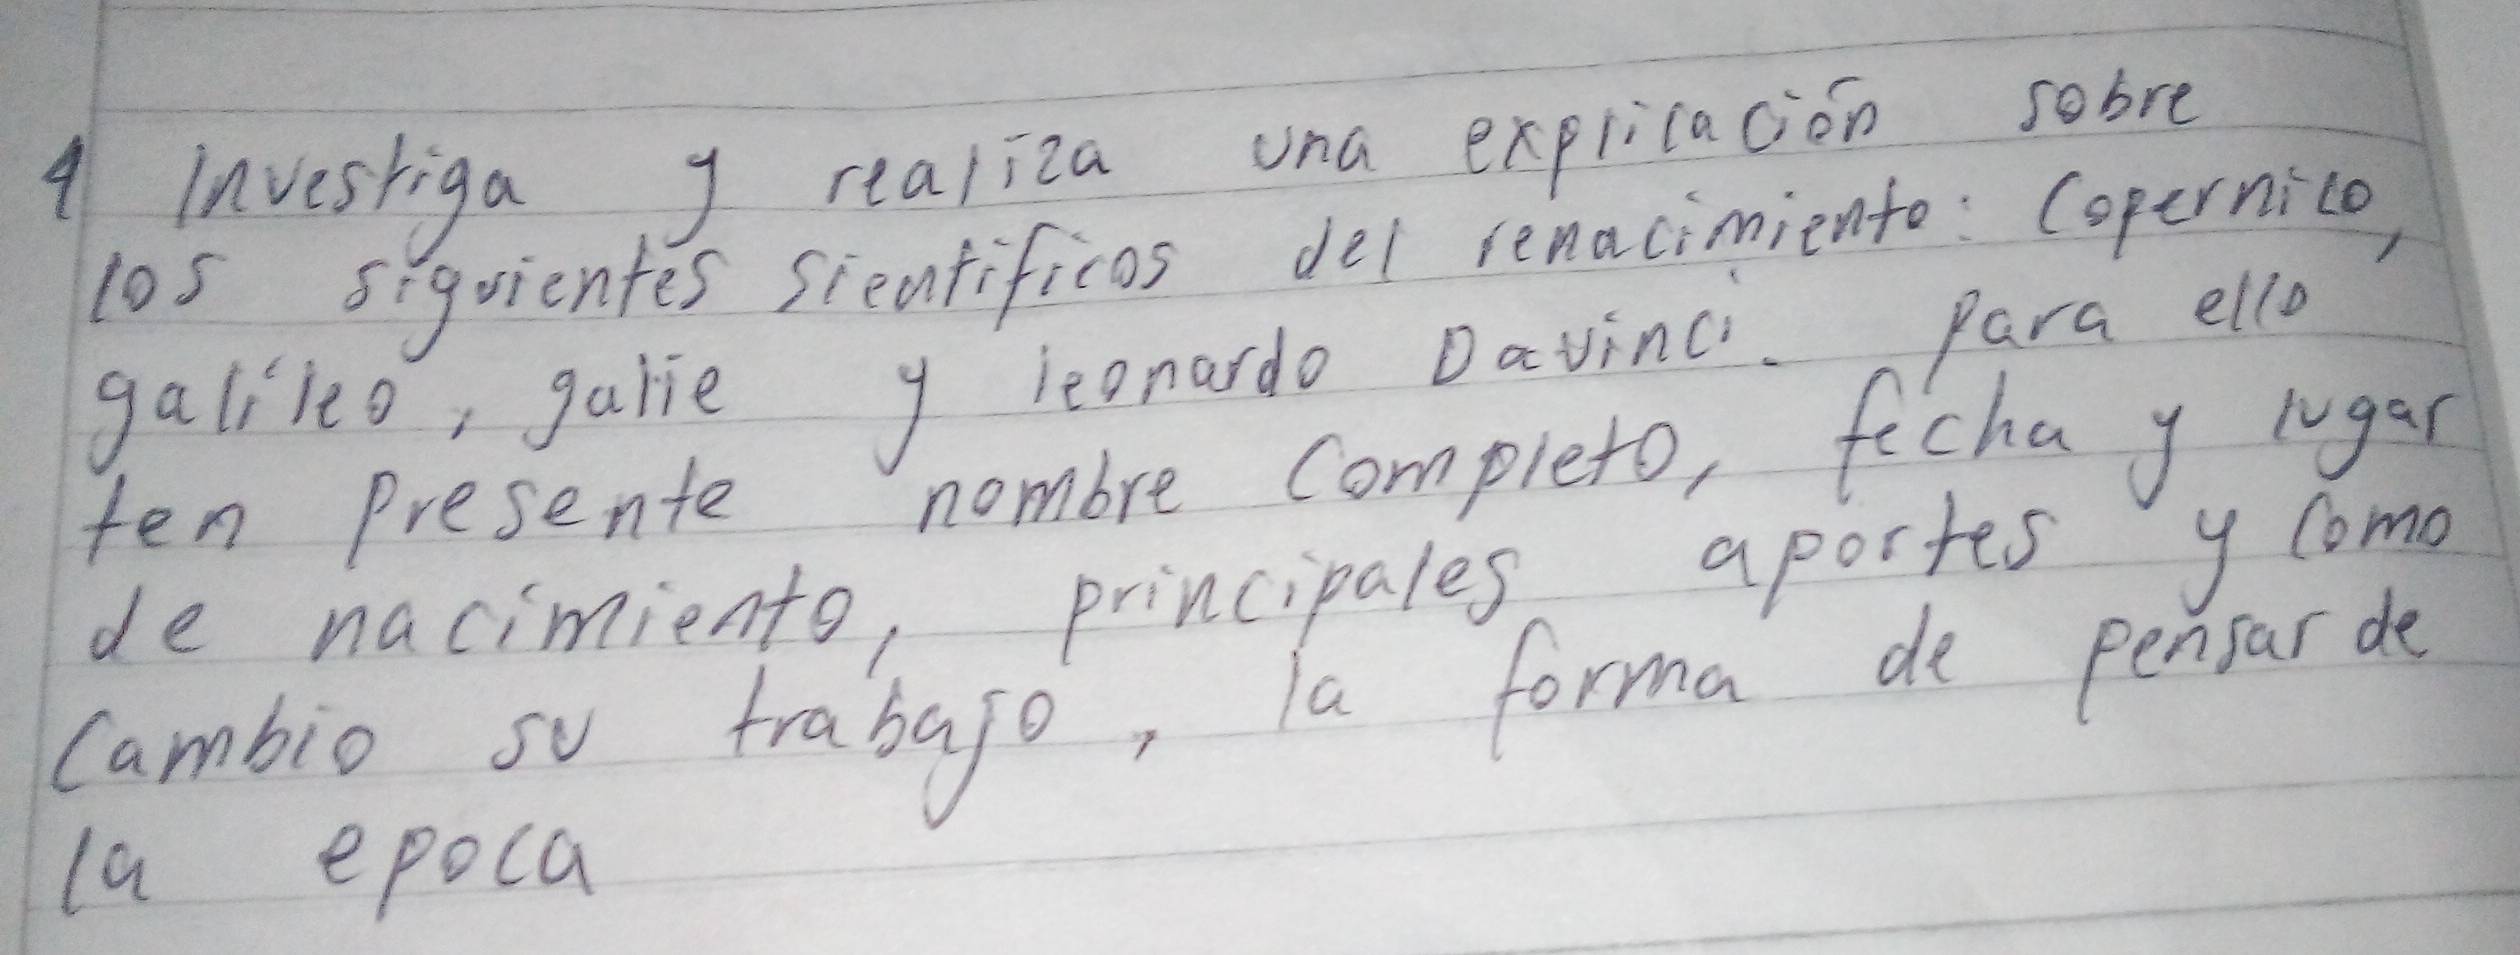 1 Investiga y realiza una explicación sobre
los siguientes sientificos del renacimiento: Copernico,
galileo, galie y leonardo Davinci. Para ello
ten presente nombre completo, fecha y lugar
de nacimiento, principales aportes y como
cambio su trabajo, la forma de pensar de
la epoca